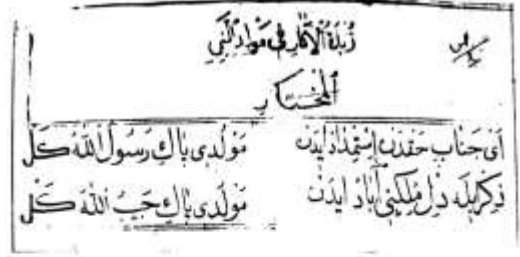 زُبْدَةُ الْآثَارِ فِي مَوْلِدِ النَّبِي
الْمُخْتَارِ
اَىْ جَنَابِ حَقْدَنْ اِسْتِمْدَادْ اِيدَنْ مَوْلِدِى بَاكِ رَسُولُ اللّٰهَ كَلْ
ذِكْرِيلَه دِلْ مُلْكِنِى آبَادْ اِيدَنْ مَوْلِدِى بَاكِ حَبِيبُ اللّٰهَ كَلْ